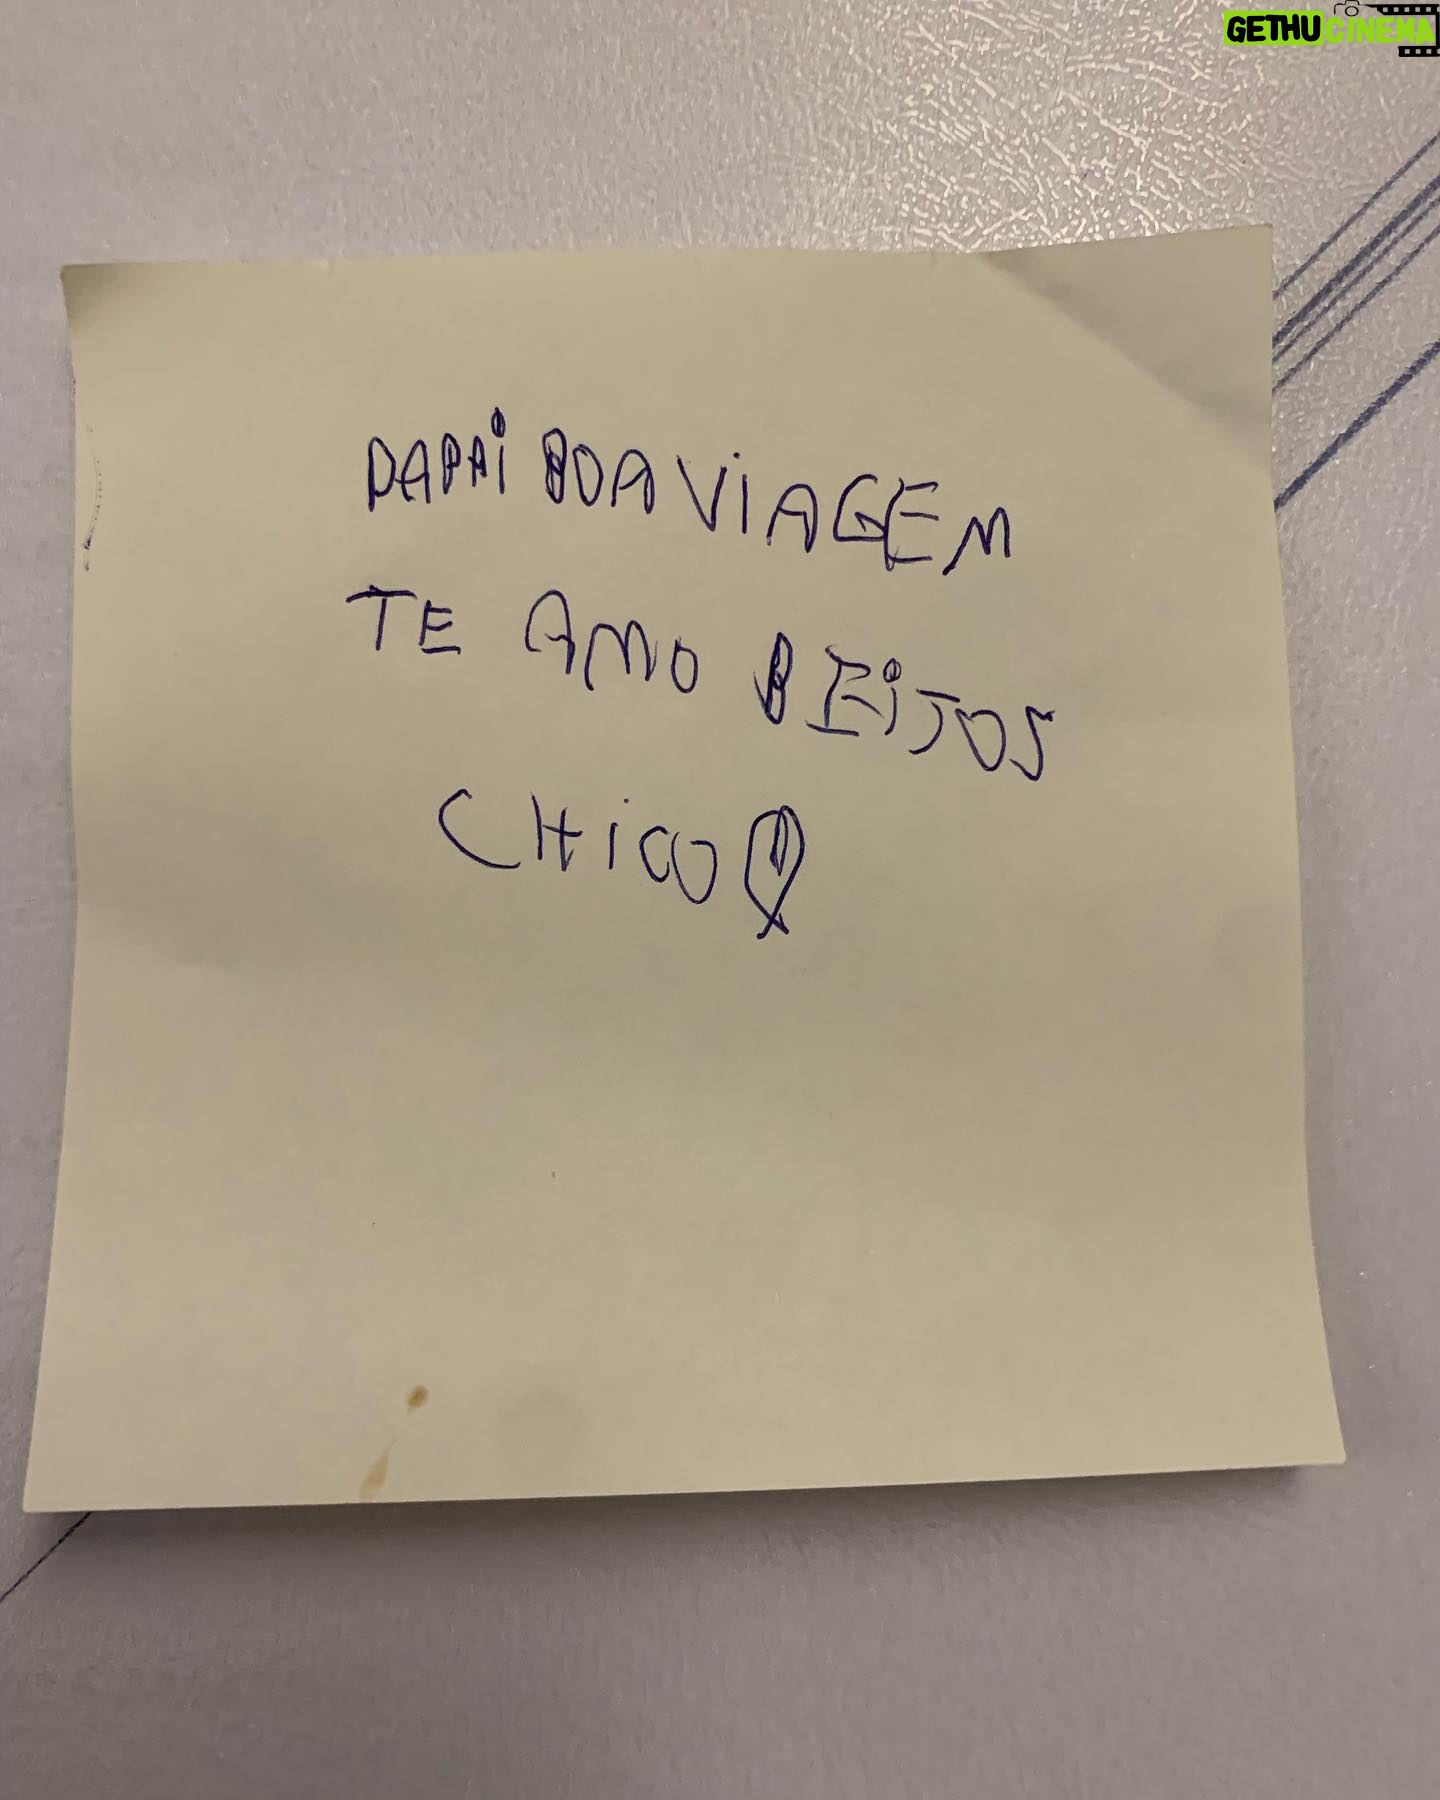 GETHUCINEMA
PAPAi BOA ViAGEM
TE AMO BEiJOS
CHiCO